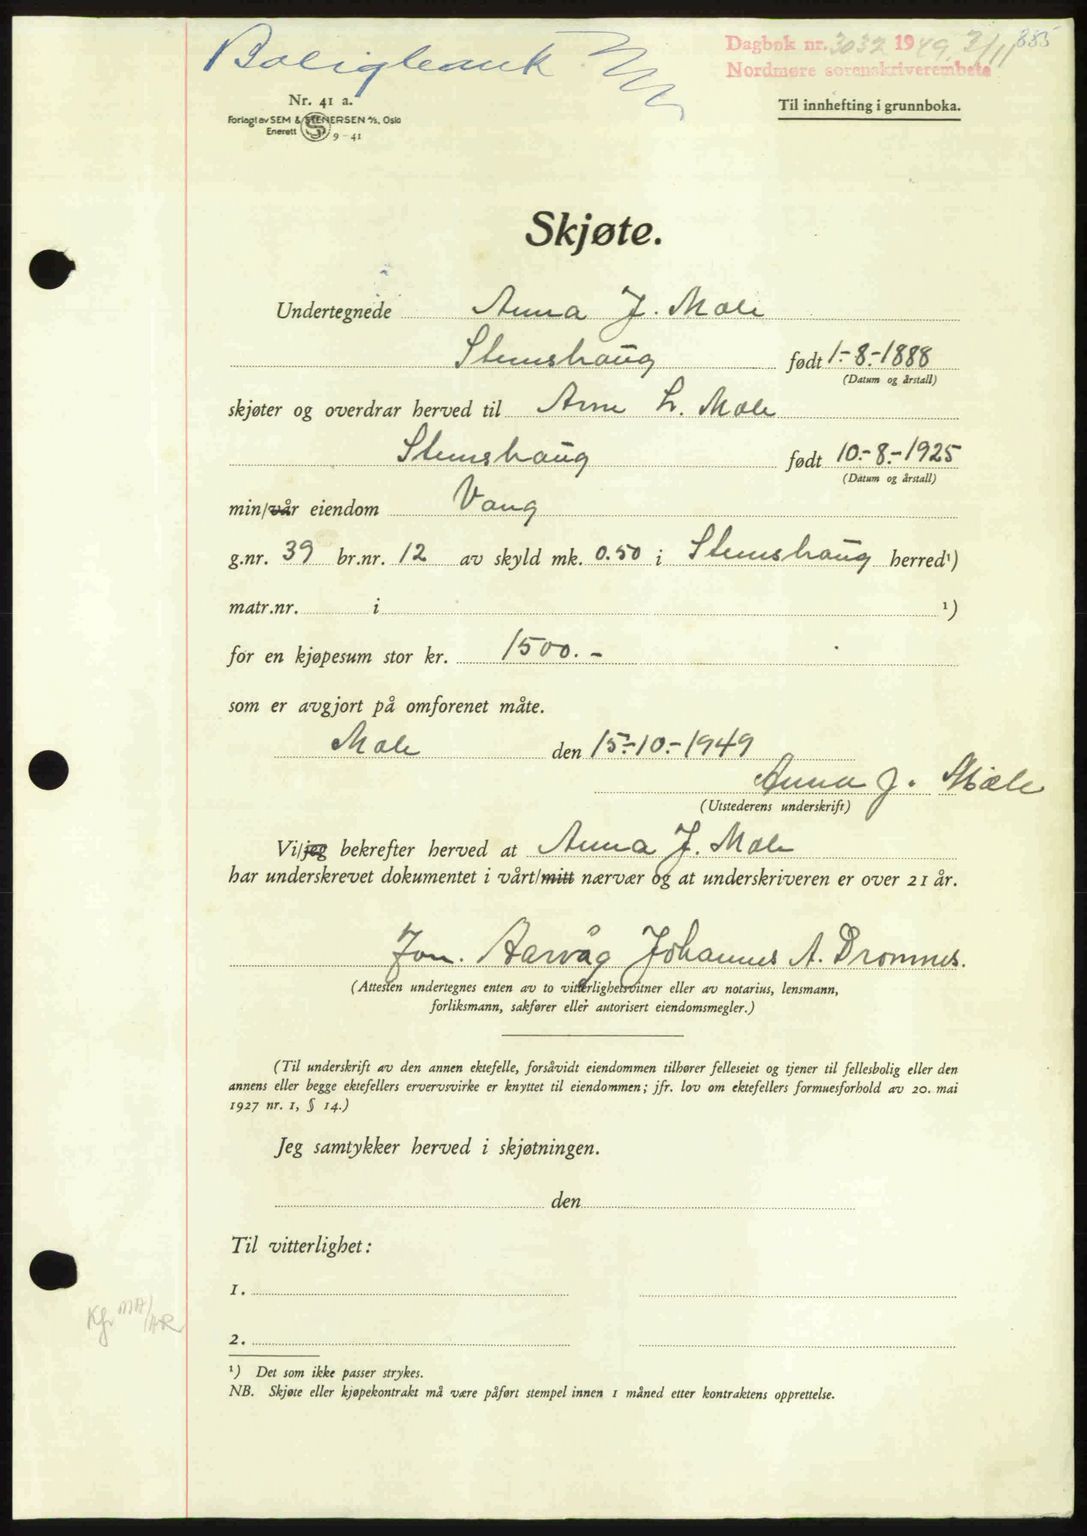 Boligbank
Dagbok nr. 3032 1949 3/11 335
Nordmøre sorenskriverembete
Nr. 41 a.
Forlagt av SEM & STENERSEN A/S, Oslo
Enerett 9-41
Til innhefting i grunnboka.
Skjøte.
Undertegnede Anna J. Mæle
Stemshaug født 1.-8.-1888
(Datum og årstall)
skjøter og overdrar herved til Arne L. Mæle
Stemshaug født 10.-8.-1925
(Datum og årstall)
min/vår eiendom Vang
g.nr. 39 br.nr. 12 av skyld mk. 0.50 i Stemshaug herred¹)
matr.nr. i ¹)
for en kjøpesum stor kr. 1500.-
som er avgjort på omforenet måte.
Mæle den 15.-10.-1949
Anna J. Mæle
(Utstederens underskrift)
Vi/jeg bekrefter herved at Anna J. Mæle
har underskrevet dokumentet i vårt/mitt nærvær og at underskriveren er over 21 år.
Jon. Aarvåg Johannes A. Dromnes.
(Attesten undertegnes enten av to vitterlighetsvitner eller av notarius, lensmann,
forliksmann, sakfører eller autorisert eiendomsmegler.)
(Til underskrift av den annen ektefelle, forsåvidt eiendommen tilhører felleseiet og tjener til fellesbolig eller den
annens eller begge ektefellers ervervsvirke er knyttet til eiendommen; jfr. lov om ektefellers formuesforhold av 20. mai
1927 nr. 1, § 14.)
Jeg samtykker herved i skjøtningen.
den
Til vitterlighet:
1.
Kfr
2.
¹) Det som ikke passer strykes.
NB. Skjøte eller kjøpekontrakt må være påført stempel innen 1 måned etter kontraktens opprettelse.